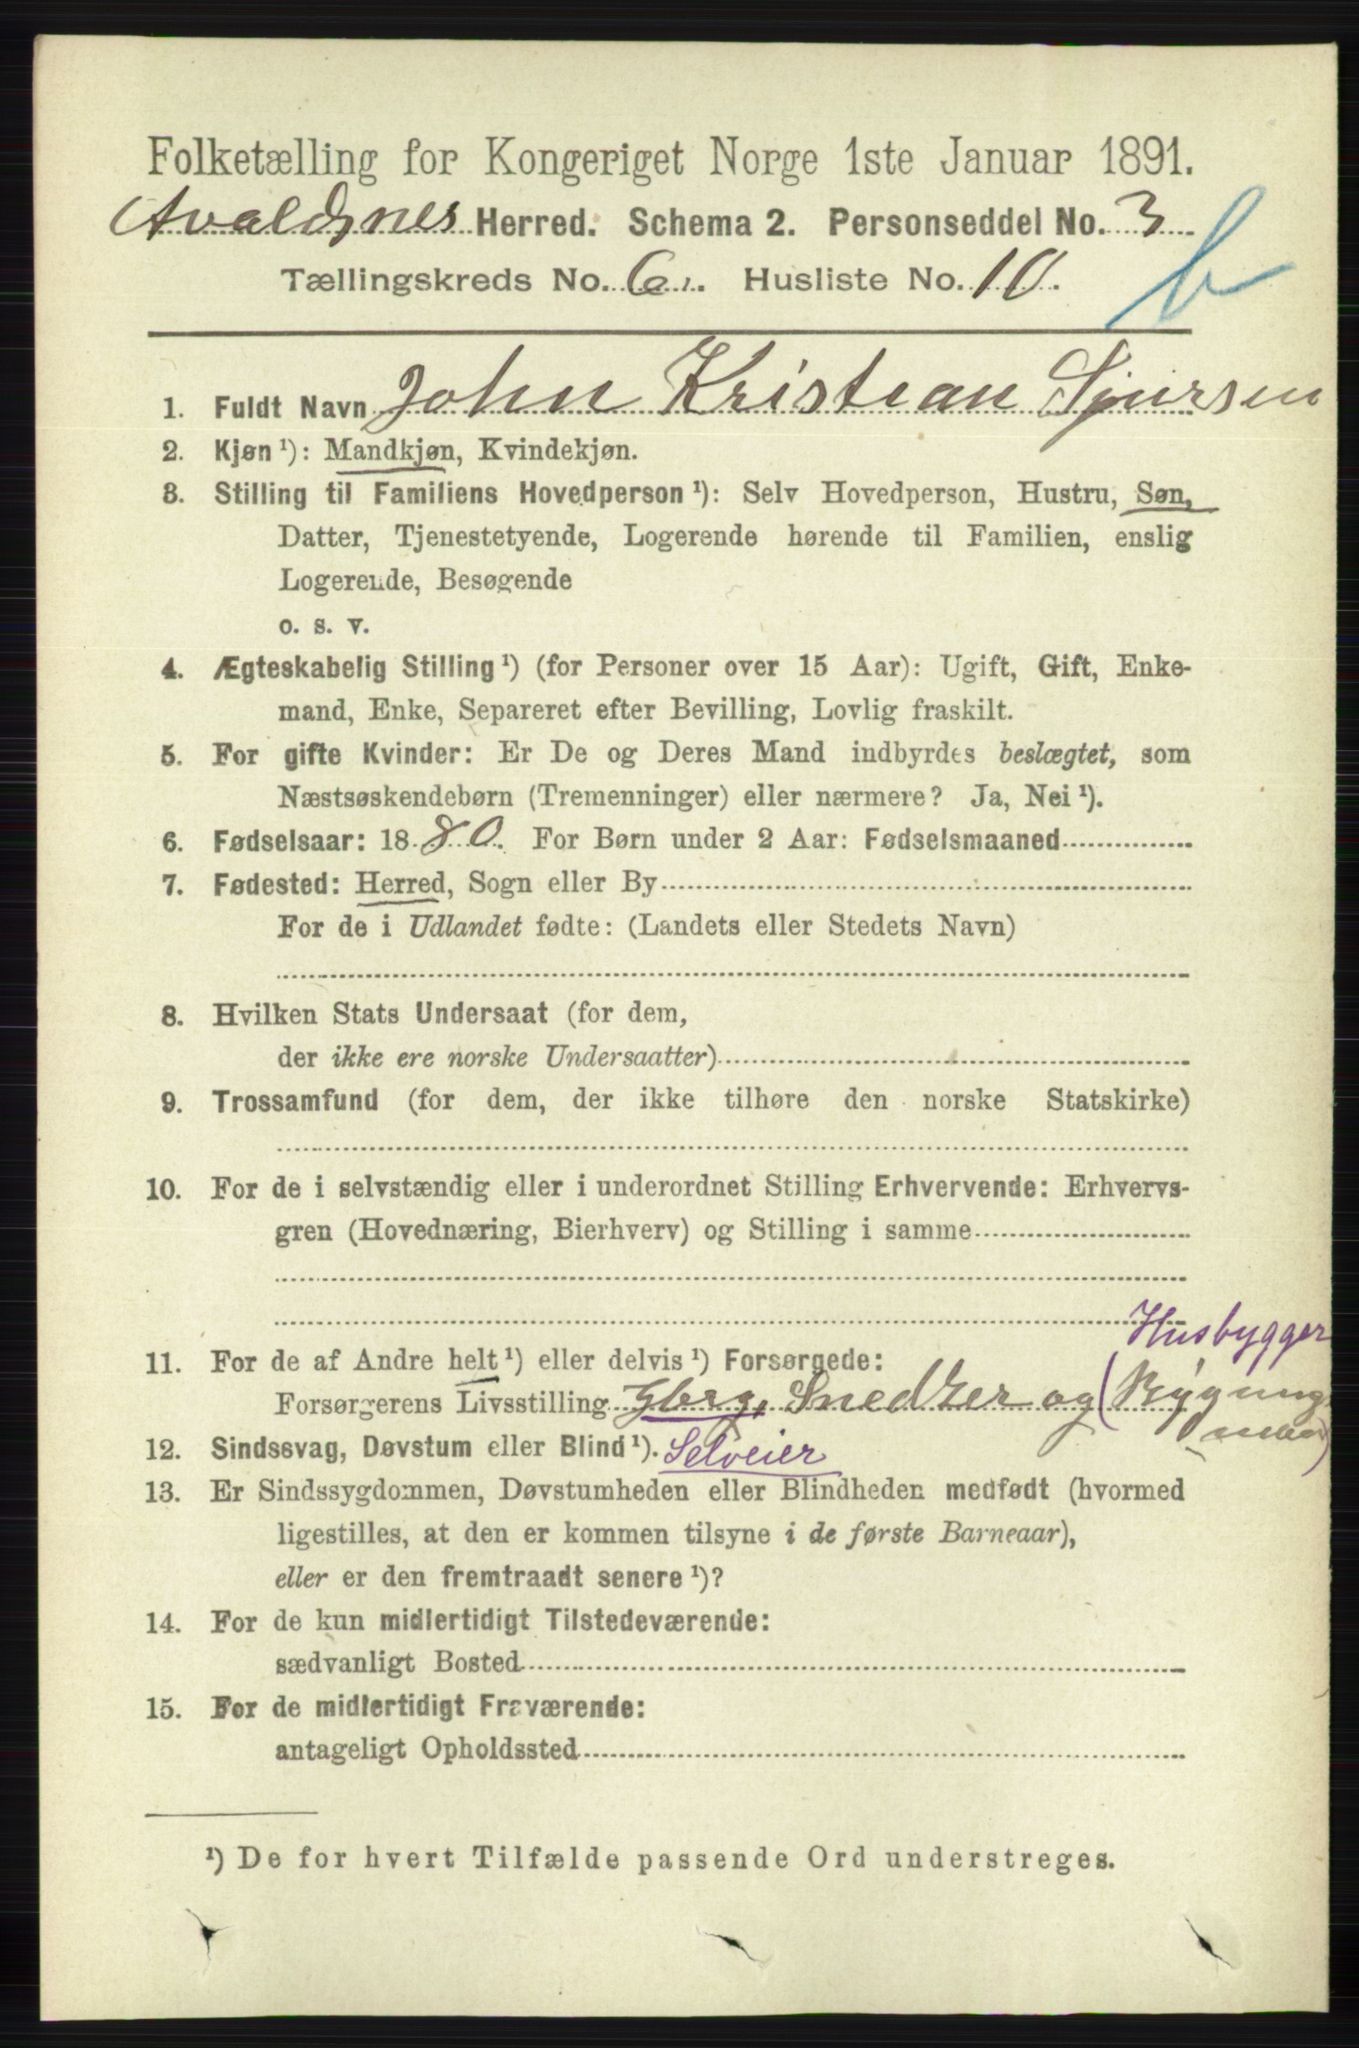 Folketælling for Kongeriget Norge 1ste Januar 1891.
Avaldsnes Herred. Schema 2. Personseddel No. 3
Tællingskreds No. 6. Husliste No. 10.
b
1. Fuldt Navn John Kristian Sjursen
2. Kjøn ¹): Mandkjøn, Kvindekjøn.
3. Stilling til Familiens Hovedperson ¹): Selv Hovedperson, Hustru, Søn,
Datter, Tjenestetyende, Logerende hørende til Familien, enslig
Logerende, Besøgende
o. s. v.
4. Ægteskabelig Stilling ¹) (for Personer over 15 Aar): Ugift, Gift, Enke-
mand, Enke, Separeret efter Bevilling, Lovlig fraskilt.
5. For gifte Kvinder: Er De og Deres Mand indbyrdes beslægtet, som
Næstsøskendebørn (Tremenninger) eller nærmere? Ja, Nei ¹).
6. Fødselsaar: 1880. For Børn under 2 Aar: Fødselsmaaned
7. Fødested: Herred, Sogn eller By
For de i Udlandet fødte: (Landets eller Stedets Navn)
8. Hvilken Stats Undersaat (for dem,
der ikke ere norske Undersaatter)
9. Trossamfund (for dem, der ikke tilhøre den norske Statskirke)
10. For de i selvstændig eller i underordnet Stilling Erhvervende: Erhvervs-
gren (Hovednæring, Bierhverv) og Stilling i samme
Husbygger
11. For de af Andre helt ¹) eller delvis ¹) Forsørgede:
Forsørgerens Livsstilling Gbrg, Snedker og (Bygnings
12. Sindssvag, Døvstum eller Blind ¹). Selveier
13. Er Sindssygdommen, Døvstumheden eller Blindheden medfødt (hvormed
ligestilles, at den er kommen tilsyne i de første Barneaar),
eller er den fremtraadt senere ¹)?
14. For de kun midlertidigt Tilstedeværende:
sædvanligt Bosted
15. For de midlertidigt Fraværende:
antageligt Opholdssted
¹) De for hvert Tilfælde passende Ord understreges.